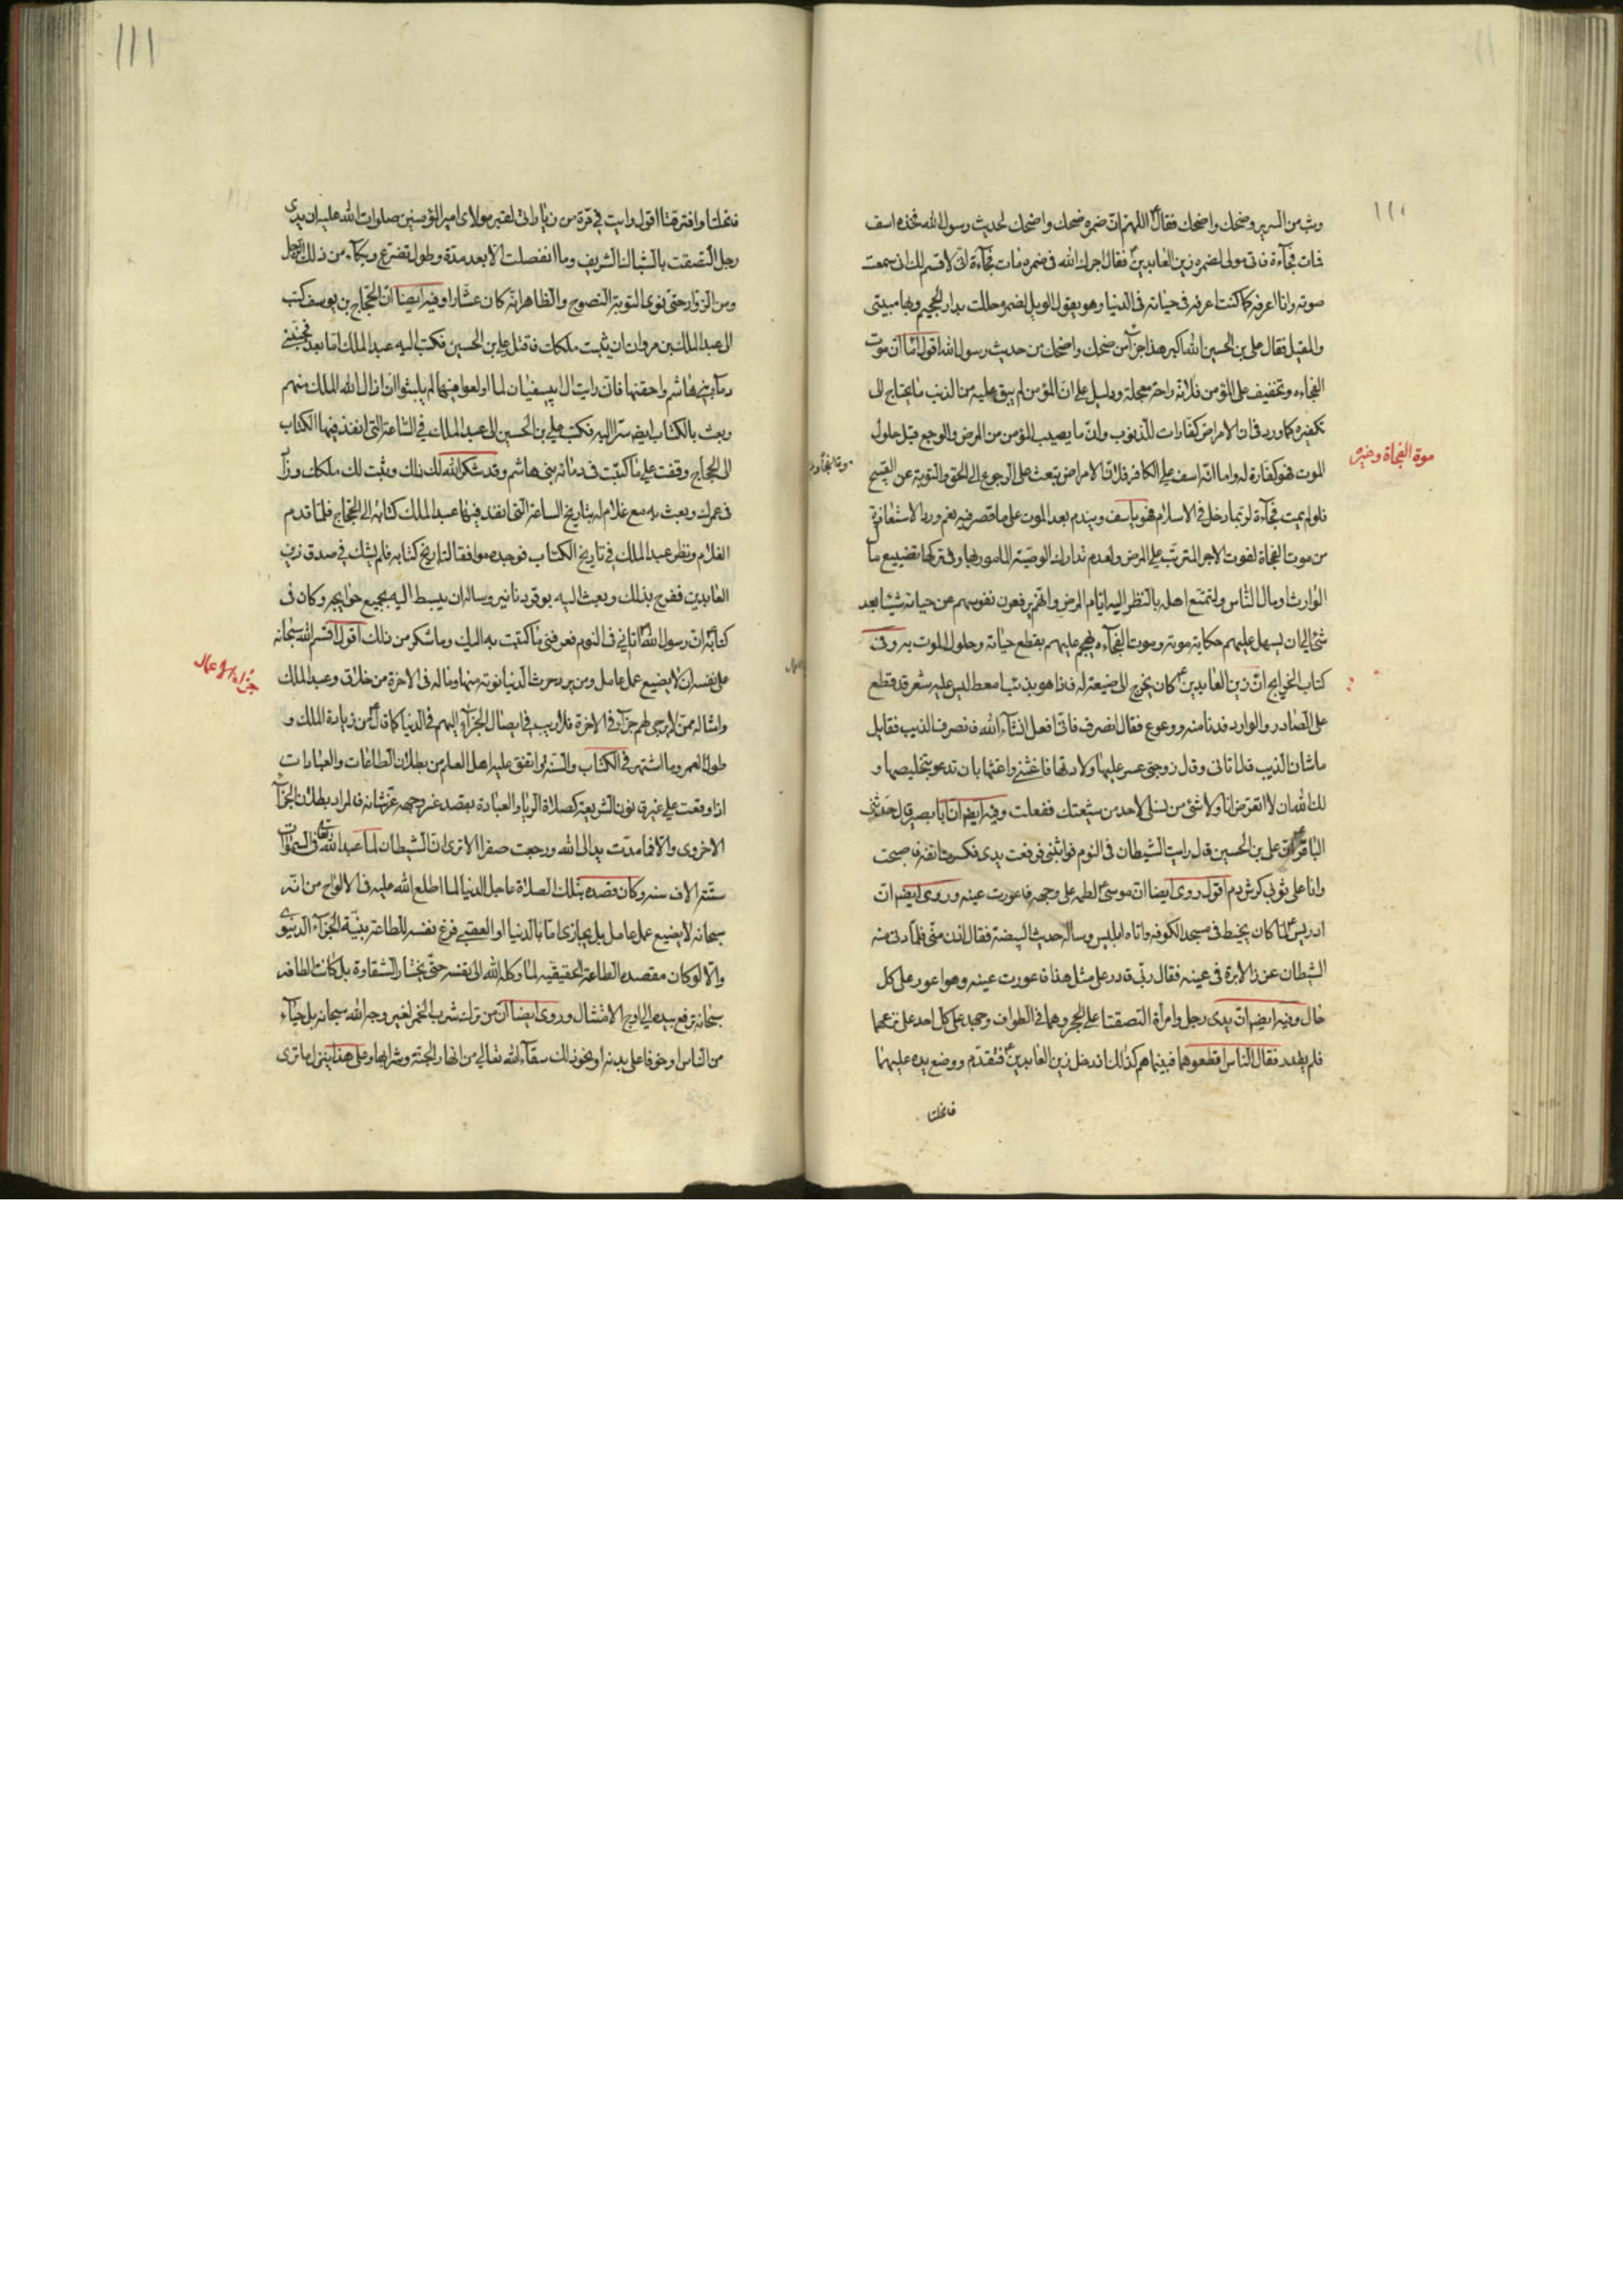 ١١١
وثب من السرير وضحك واضحك فقال اللهم ان ضمره ضحك واضحك لحديث رسول الله فخذه اسف
فمات فجآءة فاتى مولى لضمره زين العابدين فقال اجرك الله فى ضمره مات فجآءة انى لاقسم لك انى سمعت
صوته وانا اعرفه كما كنت اعرفه فى حياته فى الدنيا وهو يقول الويل لضمره حللت بدار الجحيم وبها مبيتى
والمقيل فقال على بن الحسين الله اكبر هذا جزآء من ضحك واضحك من حديث رسول الله اقول انما ان موت
الفجاءه وتخفيف على المؤمن فلانه راحة معجلة ودليل على ان المؤمن لم يبق عليه من الذنب ما يحتاج الى
تكفيره كما ورد فى ان الامراض كفارات للذنوب وان ما يصيب المؤمن من المرض والوجع قبل حلول
الموت فهو كفارة له واما انه اسف على الكافر فلان الامراض تبعث على الرجوع الى الحق والتوبة عن القبيح
فلو لم يمت فجآءة لربما دخل فى الاسلام فهو ياسف ويندم بعد الموت على ما قصر فيه نعم ورد الاستعاذة
من موت الفجاة لفوت الاجر المترتب على المرض ولعدم تدارك الوصية المامور بها وفى تركها تضييع ما
الوارث او مال الناس ولتمتع اهله بالنظر اليه ايام المرض وانهم يرفعون نفوسهم عن حياته شيئا بعد
شئ الى ان يسهل عليهم حكاية موته وموت الفجآءه يهجم عليهم بقطع حياته وحلول الموت به وفى
كتاب الخرايج ان زين العابدين كان يخرج الى ضيعة له فاذا هو بذئب امعط ليس عليه شعر قد قطع
على الصادر والوارد فدنا منه ووعوع فقال انصرف فانى افعل انشآء الله فانصرف الذيب فقايل
ما شان الذيب فقال اتانى وقال زوجتى عسر عليها ولادتها فاغثنى واغثها بان تدعو بتخليصها و
لك الله ان لا اتعرض انا ولا شئ من نسلى لاحد من شيعتك ففعلت وفيه ايضه ان ابا بصير قال حدثنى
الباقر ان على بن الحسين قال رايت الشيطان فى النوم فواثبنى فرفعت يدى فكسرت انفه فاصبحت
وانا على ثوبى كرش دم اقول روى ايضا ان موسى لطمه على وجهه فاعورت عينه وروى ايضه ان
ادريس لما كان يخيط فى مسجد الكوفه واتاه ابليس وساله حديث البيضة فقال ادن منى فلما دنى منه
الشيطان غرز الابرة فى عينه فقال ربى قادر على مثل هذا فاعورت عينه وهو اعور على كل
حال وفيه ايضه ان يدى رجل وامراة التصقتا على الحجر وهما فى الطواف وجهد على كل احد على نزعهما
فلم يقدر فقال الناس اقطعوهما فبينما هم كذلك اذ دخل زين العابدين فتقدم ووضع يده عليهما
فانحلتا
موة الفجاة وخيره
١١١
فانحلتا وافترقتا اقول رايت فى مرة من زياراتى لقبر مولاى امير المؤمنين صلوات الله عليه ان يدى
رجل التصقت بالشباك الشريف وما انفصلت الا بعد مدة وطول تضرع وبكآء من ذلك الرجل
ومن الزوار حتى نوى التوبة النصوح والظاهر انه كان عشارا وفيه ايضا ان الحجاج بن يوسف كتب
الى عبد الملك بن مروان ان يثبت ملكك فاقتل على بن الحسين فكتب اليه عبد الملك اما بعد فجنبنى
دمآء بنى هاشم واحقنها فانى رايت ال ابى سفيان لما اولعوا فيها لم يلبثوا ان ازال الله الملك منهم
وبعث بالكتاب ايضه سرا اليه فكتب على بن الحسين الى عبد الملك فى الساعة التى انفذ فيها الكتاب
الى الحجاج وقفت على ما كتبت فى دمآء بنى هاشم وقد شكر الله لك ذلك وثبت لك ملكك وزاد
فى عمرك وبعث به مع غلام له بتاريخ الساعة التى انفذ فيها عبد الملك كتابه الى الحجاج فلما قدم
الغلام ونظر عبد الملك فى تاريخ الكتاب فوجده موافقا لتاريخ كتابه فلم يشك فى صدق زين
العابدين ففرح بذلك وبعث اليه بوقر دنانير وساله ان يبسط اليه بجميع حوايجه وكان فى
كتابه ان رسول الله اتانى فى النوم فعرفنى ما كتبت به اليك وما شكر من ذلك اقول اقسم الله سبحانه
على نفسه ان لا يضيع عمل عامل ومن يرد حرث الدنيا نوته منها وماله فى الاخرة من خلاق وعبد الملك
وامثاله ممن لا يرجى لهم جزآء فى الاخرة فلا ريب فى ايصال الجزآء اليهم فى الدنيا كما قال من زيادة الملك و
طول العمر وما اشتهر فى الكتاب والسنة واتفق عليه اهل العلم من بطلان الطاعات والعبادات
اذا وقعت على غير قانون الشريعة كصلاة الريا والعبادة بقصد غير وجهه عز شانه فالمراد بطلان الجزآء
الاخروى والا فما مدت يد الى الله ورجعت صفرا الا ترى ان الشيطان لما عبد الله تعالى فى السموات
ستة الاف سنه وكان قصده بتلك الصلاة عاجل الدنيا لما اطلع الله عليه فى الالواح من انه
سبحانه لا يضيع عمل عامل بل يجازى اما بالدنيا او العقبى فزع نفسه للطاعة بنية الجزآء الدنيوى
والا لو كان مقصده الطاعة الحقيقيه لما وكله الله الى نفسه حتى يختار الشقاوة بل كانت الطافه
سبحانه ترفع بيده الى اوج الامتثال وروى ايضا ان من ترك شرب الخمر لغير وجه الله سبحانه بل حيآء
من الناس او خوفا على بدنه او نحو ذلك سقآه الله تعالى من انهار الجنة وشرابها وعلى هذا ينزل ما ترى
جزاء الاعمال